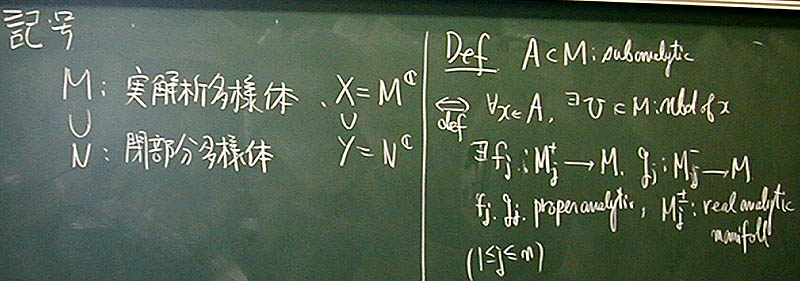 記号
M: 実解析多様体、X=M^ℂ
∪ ∪
N: 閉部分多様体 Y=N^ℂ
Def A⊂M: subanalytic
⇔def ∀x∈A, ∃U⊂M: nbd of x
∃f_j: M_j^+ → M, g_j: M_j^- → M
f_j, g_j, proper analytic, M_j^±: real analytic
manifold
(1≤j≤n)